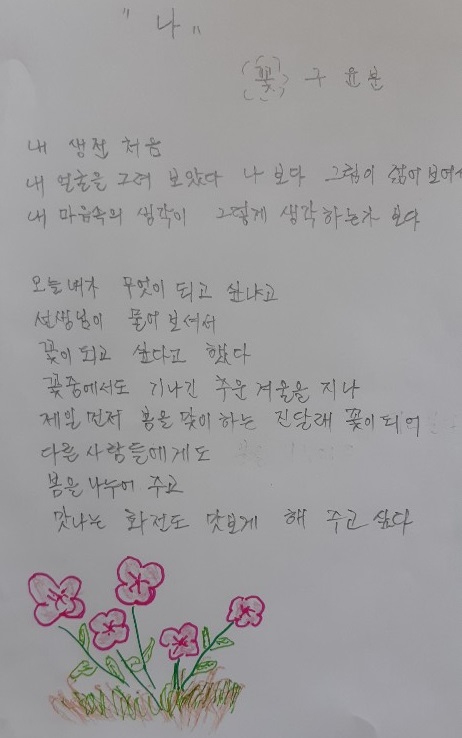 "나"
꽃 구윤분
내 생전 처음
내 얼굴을 그려 보았다 나 보다 그림이 젊어 보여서
내 마음속의 생각이 그렇게 생각하는가 보다
오늘 내가 무엇이 되고 싶냐고
선생님이 물어 보셔서
꽃이 되고 싶다고 했다
꽃중에서도 기나긴 추운 겨울을 지나
제일 먼저 봄을 맞이 하는 진달래 꽃이 되어
다른 사람들에게도
봄을 나누어 주고
맛나는 화전도 맛보게 해 주고 싶다